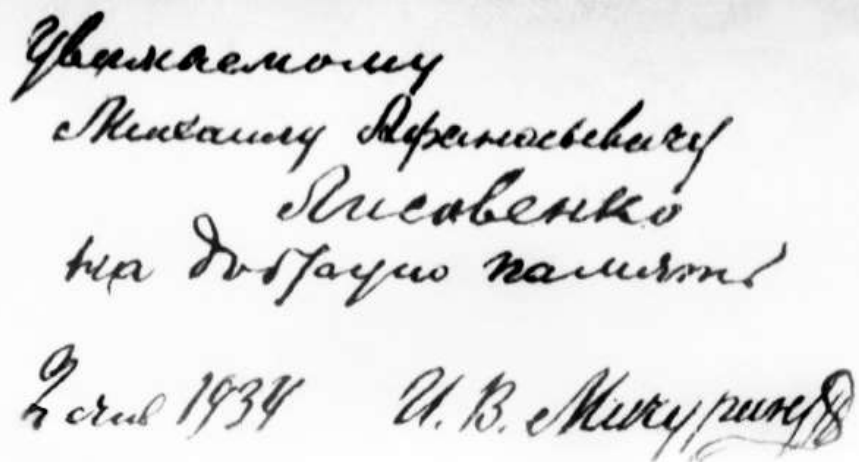 Уважаемому
Михаилу Афанасьевичу
Лисавенко
на добрую память
2 1934 И. В. Мичурин